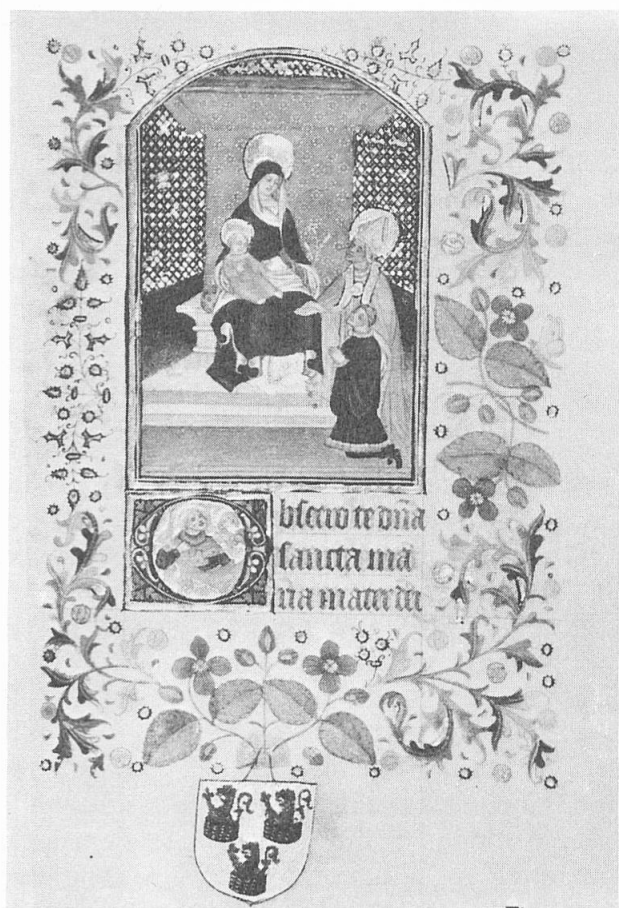 Obsecro te dña
sancta ma
ria mater dei